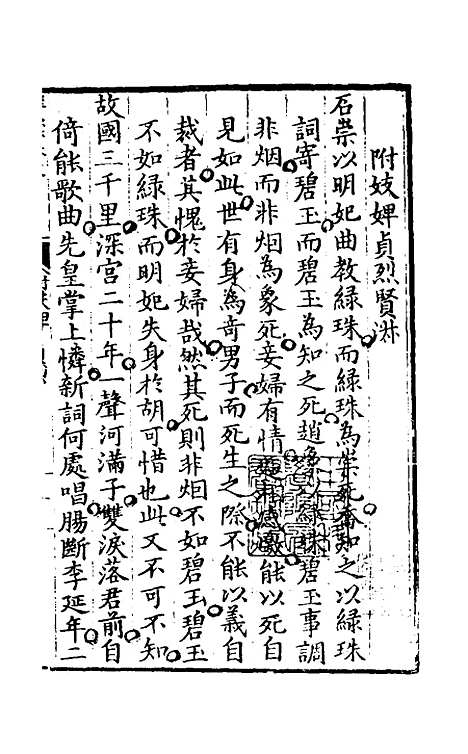 附妓婢貞烈賢淋
石崇以明妃曲教緑珠而緑珠為崇死喬知之以緑珠
詞寄碧玉而碧玉為知之死趙象以緑珠碧玉事調
非烟而非烟為象死妾婦有情能以死自
見如此世有身為奇男子而死生之際不能以義自
裁者其愧於妾婦哉然其死則非烟不如碧玉碧玉
不如緑珠而明妃失身於胡可惜也此又不可不知
故國三千里深宮二十年一聲河滿子雙淚落君前自
倚能歌曲先皇掌上憐新詞何處唱腸斷李延年二